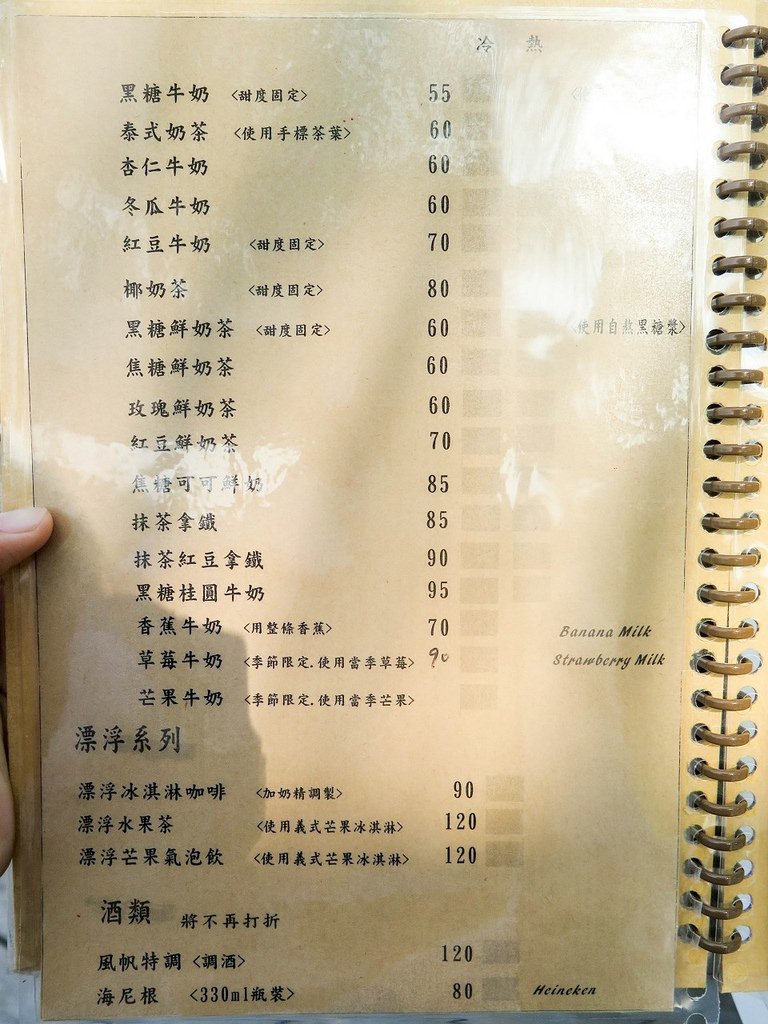 冷 熱
黑糖牛奶 <甜度固定> 55
泰式奶茶 <使用手標茶葉> 60
杏仁牛奶 60
冬瓜牛奶 60
紅豆牛奶 <甜度固定> 70
椰奶茶 <甜度固定> 80
黑糖鮮奶茶 <甜度固定> 60 <使用自熬黑糖漿>
焦糖鮮奶茶 60
玫瑰鮮奶茶 60
紅豆鮮奶茶 70
焦糖可可鮮奶 85
抹茶拿鐵 85
抹茶紅豆拿鐵 90
黑糖桂圓牛奶 95
香蕉牛奶 <用整條香蕉> 70 Banana Milk
草莓牛奶 <季節限定.使用當季草莓> 90 Strawberry Milk
芒果牛奶 <季節限定.使用當季芒果>
漂浮系列
漂浮冰淇淋咖啡 <加奶精調製> 90
漂浮水果茶 <使用義式芒果冰淇淋> 120
漂浮芒果氣泡飲 <使用義式芒果冰淇淋> 120
酒類 將不再打折
風帆特調 <調酒> 120
海尼根 <330ml瓶裝> 80 Heineken